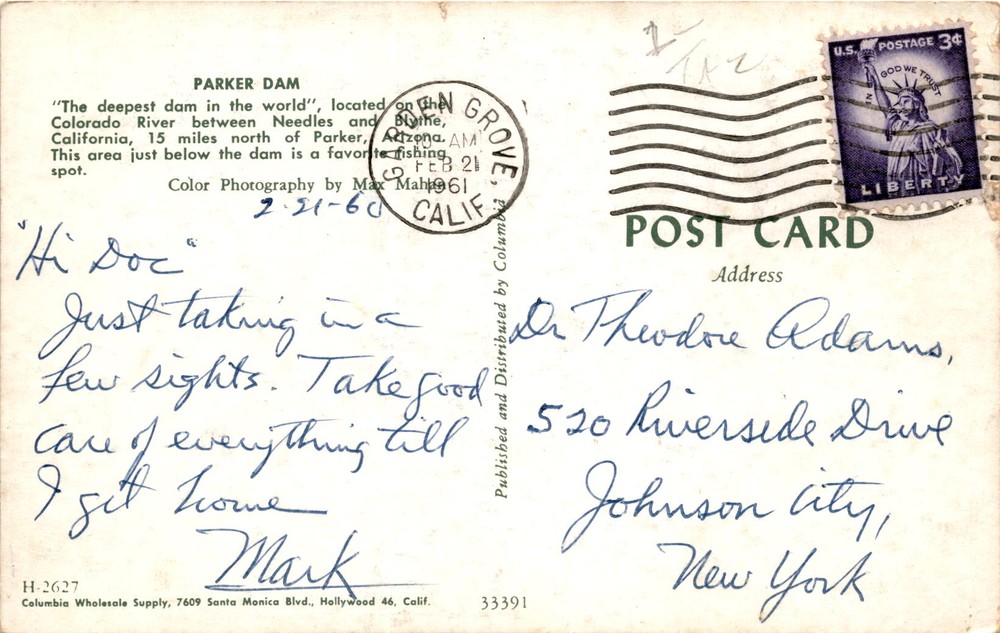 PARKER DAM
"The deepest dam in the world", located on the
Colorado River between Needles and Blythe,
California, 15 miles north of Parker, Arizona.
This area just below the dam is a favorite fishing
spot.
Color Photography by Max Mahan
2-21-60
"Hi Doc"
Just taking in a
few sights. Take good
care of everything till
I get home
Mark
H-2627
Columbia Wholesale Supply, 7609 Santa Monica Blvd., Hollywood 46, Calif.
33391
Published and Distributed by Columbia
GARDEN GROVE, CALIF.
10 AM
FEB 21
1961
U.S. POSTAGE 3¢
IN GOD WE TRUST
LIBERTY
POST CARD
Address
Dr Theodore Adams,
520 Riverside Drive
Johnson City,
New York